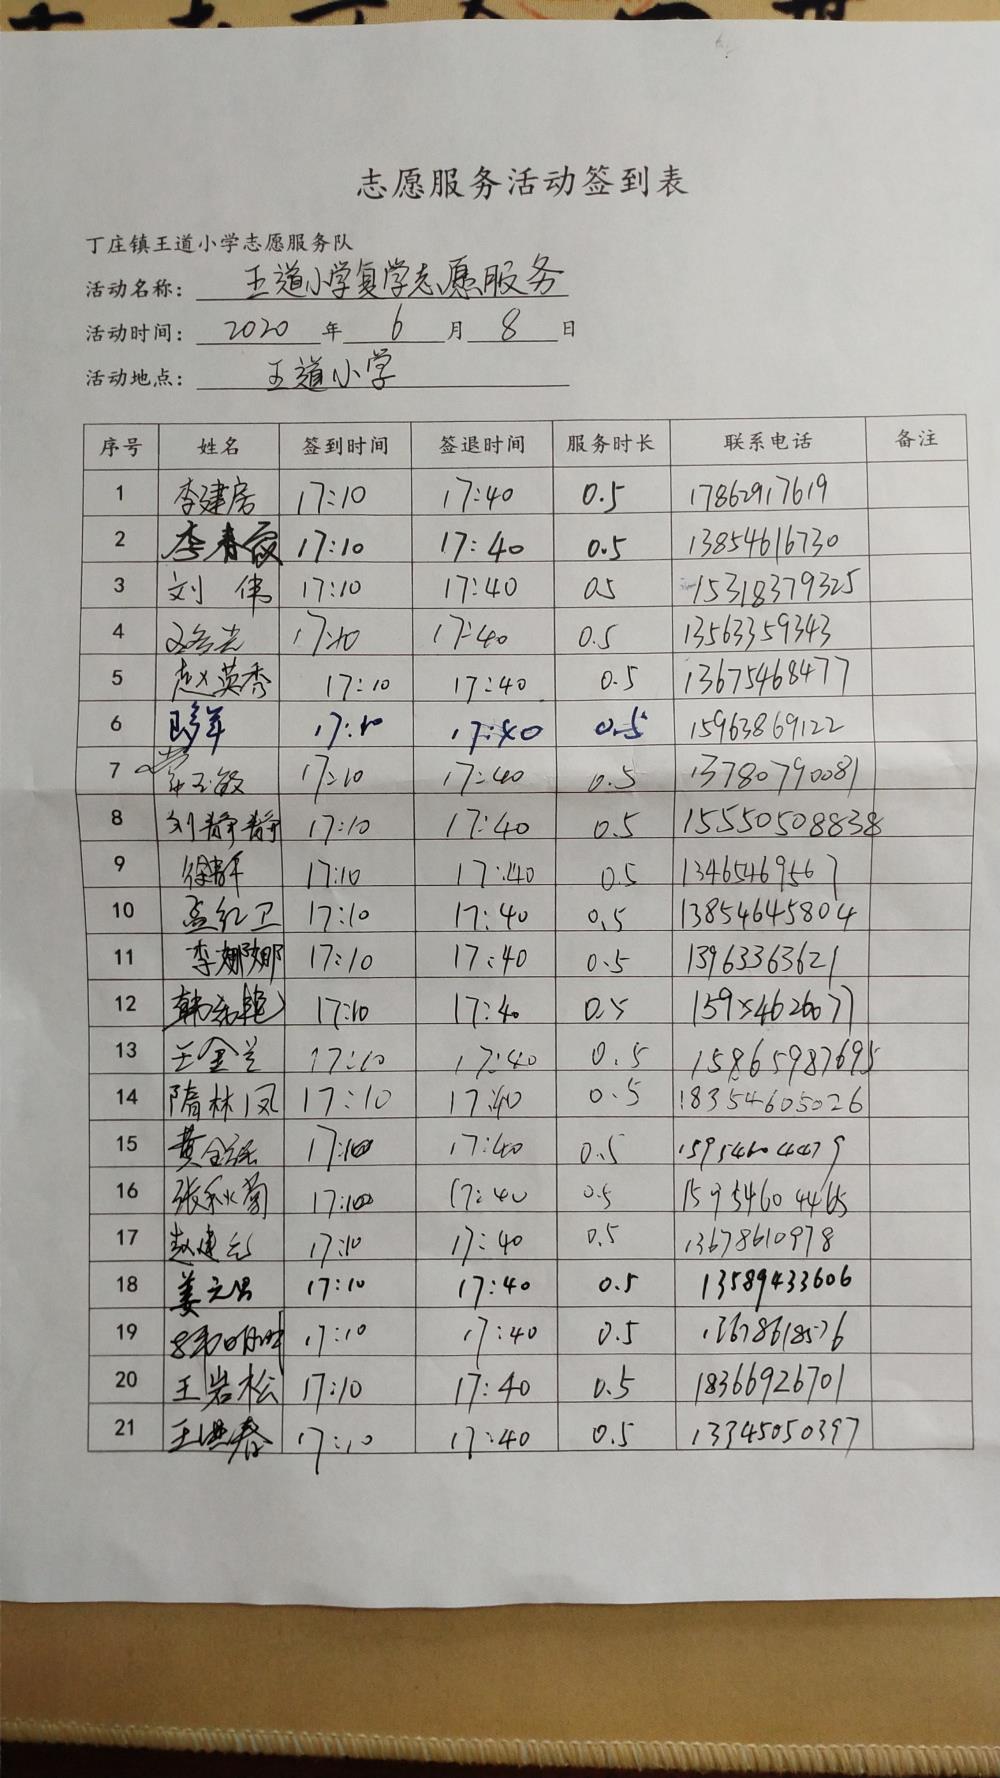 志愿服务活动签到表
丁庄镇王道小学志愿服务队
活动名称：王道小学复学志愿服务
活动时间：2020年6月8日
活动地点：王道小学
序号 姓名 签到时间 签退时间 服务时长 联系电话 备注
1 李建房 17:10 17:40 0.5 17862917619
2 李春霞 17:10 17:40 0.5 13854616730
3 刘伟 17:10 17:40 0.5 15318379325
4 17:10 17:40 0.5 13563359343
5 赵英秀 17:10 17:40 0.5 13675468477
6 17:10 17:40 0.5 15963869122
7 17:10 17:40 0.5 13780790081
8 刘静静 17:10 17:40 0.5 15550508838
9 17:10 17:40 0.5 13465469567
10 孟红卫 17:10 17:40 0.5 13854645804
11 李娜娜 17:10 17:40 0.5 13963363621
12 17:10 17:40 0.5 15954626077
13 王金兰 17:10 17:40 0.5 15865987695
14 隋林凤 17:10 17:40 0.5 18354605026
15 17:10 17:40 0.5 15954604479
16 张秋菊 17:10 17:40 0.5 15954604465
17 17:10 17:40 0.5 13678610978
18 17:10 17:40 0.5 13589433606
19 17:10 17:40 0.5 13678618576
20 王岩松 17:10 17:40 0.5 18366926701
21 17:10 17:40 0.5 13345050397